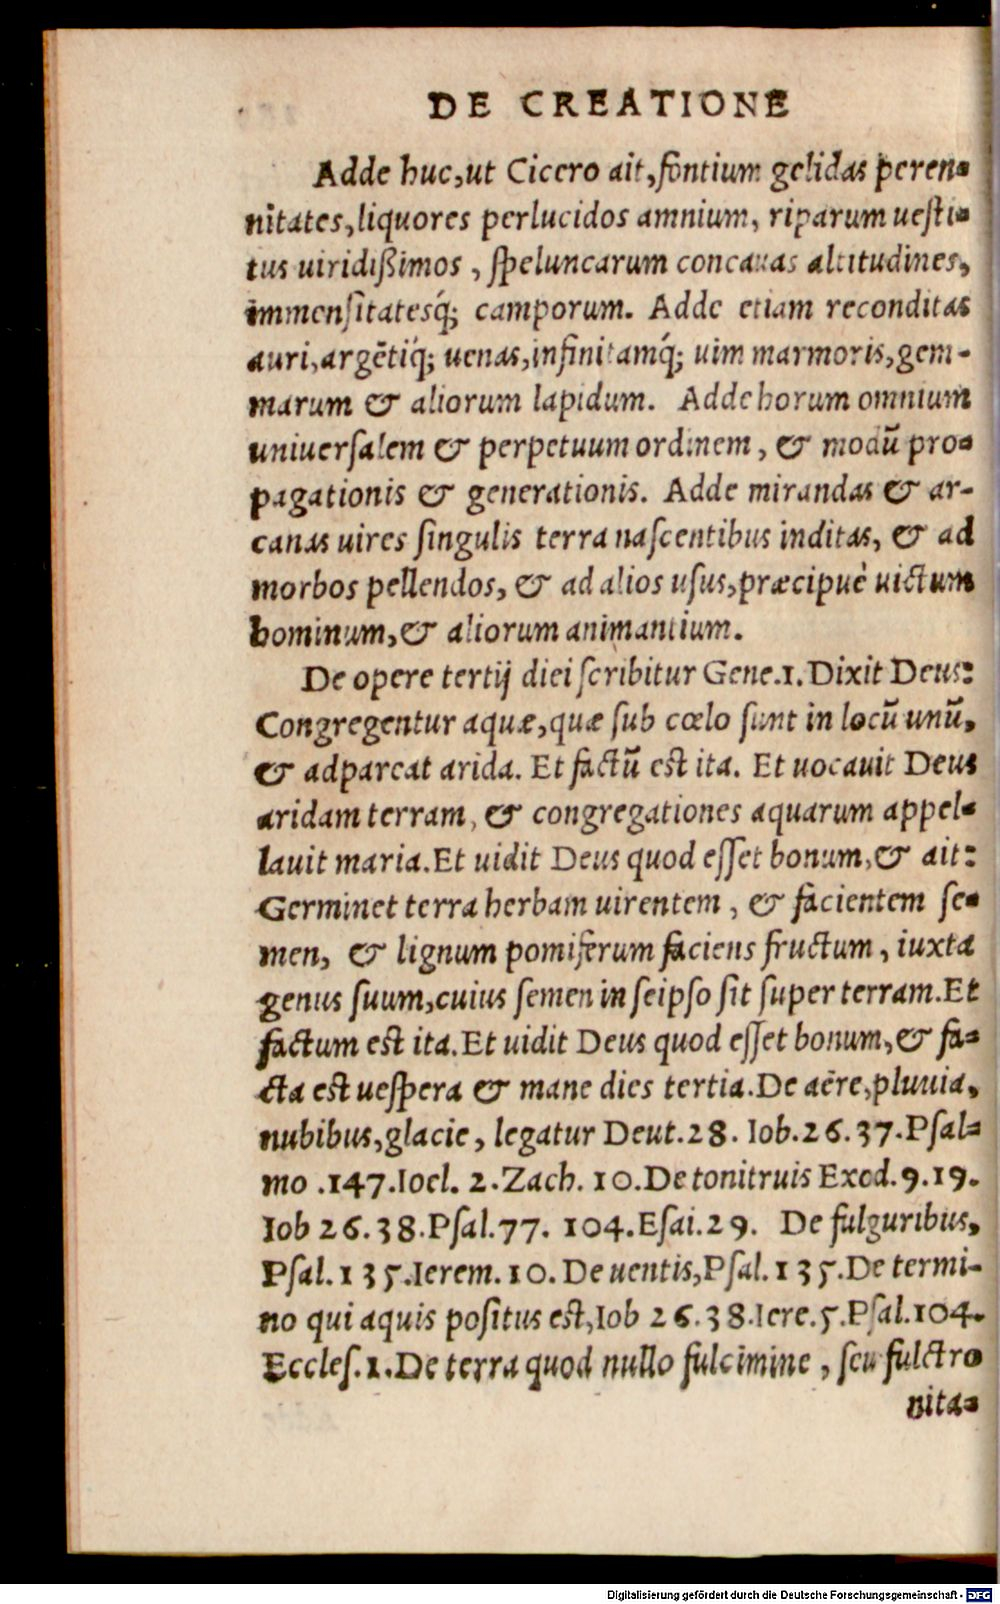 DE CREATIONE
Adde huc,ut Cicero ait,fontium gelidas peren-
nitates,liquores perlucidos amnium, riparum uesti-
tus uiridißimos , ſpeluncarum concauas altitudines,
immenſitatesq́; camporum. Adde etiam reconditas
auri,argētiq́; uenas,infinitamq́; uim marmoris,gem-
marum & aliorum lapidum. Adde horum omnium
uniuerſalem & perpetuum ordinem , & modū pro-
pagationis & generationis. Adde mirandas & ar-
canas uires ſingulis terra naſcentibus inditas, & ad
morbos pellendos, & ad alios uſus,præcipuè uictum
hominum,& aliorum animantium.
De opere tertij diei ſcribitur Gene.1. Dixit Deus:
Congregentur aquæ,quæ ſub cœlo ſunt in locū unū,
& adpareat arida. Et factū est ita. Et uocauit Deus
aridam terram, & congregationes aquarum appel-
lauit maria.Et uidit Deus quod eſſet bonum,& ait:
Germinet terra herbam uirentem , & facientem ſe-
men, & lignum pomiferum faciens fructum , iuxta
genus ſuum,cuius ſemen in ſeipſo ſit ſuper terram.Et
factum est ita.Et uidit Deus quod eſſet bonum,& fa-
cta est ueſpera & mane dies tertia.De aëre,pluuia,
nubibus,glacie, legatur Deut.28. Iob.26.37.Pſal-
mo .147.Ioel. 2.Zach. 10.De tonitruis Exod.9.19.
Iob 26.38.Pſal.77. 104.Eſai.29. De fulguribus,
Pſal.135.Ierem.10.De uentis,Pſal.135.De termi-
no qui aquis poſitus est,Iob 26.38.Iere.5.Pſal.104.
Eccleſ.1.De terra quod nullo fulcimine , ſeu fulctro
nita-
Digitalisierung gefördert durch die Deutsche Forschungsgemeinschaft - DFG